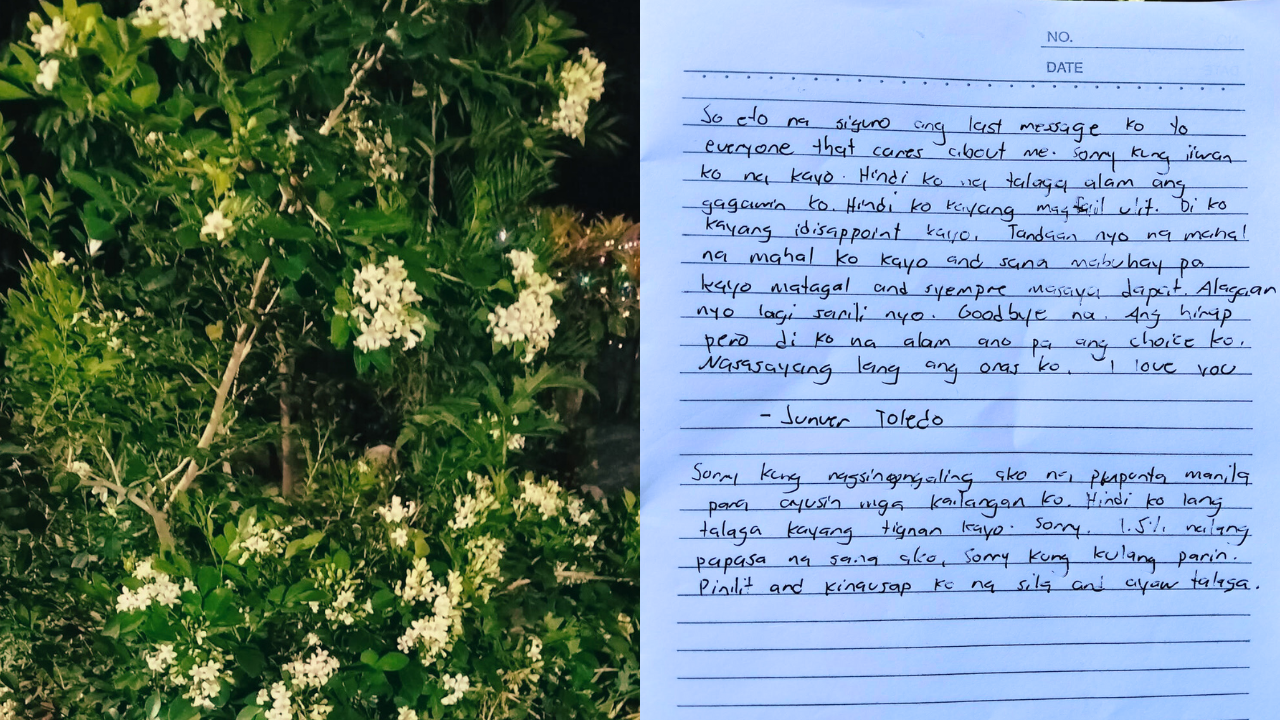 NO.
DATE
So eto na siguro ang last message ko to
everyone that cares about me. Sorry kung iiwan
ko na kayo. Hindi ko na talaga alam ang
gagawin ko. Hindi ko kayang magfail ulit. Di ko
kayang idisappoint kayo. Tandaan nyo na mahal
na mahal ko kayo and sana mabuhay pa
kayo matagal and syempre masaya dapat. Alagaan
nyo lagi sarili nyo. Goodbye na. Ang hirap
pero di ko na alam ano pa ang choice ko.
Nasasayang lang ang oras ko. I love you
- Junver Toledo
Sorry kung nagsingungaling ako na pupunta manila
para ayusin mga kailangan ko. Hindi ko lang
talaga kayang tignan kayo. Sorry. 1.5% nalang
papasa na sana ako, Sorry kung kulang parin.
Pinilit and kinausap ko na sila and ayaw talaga.